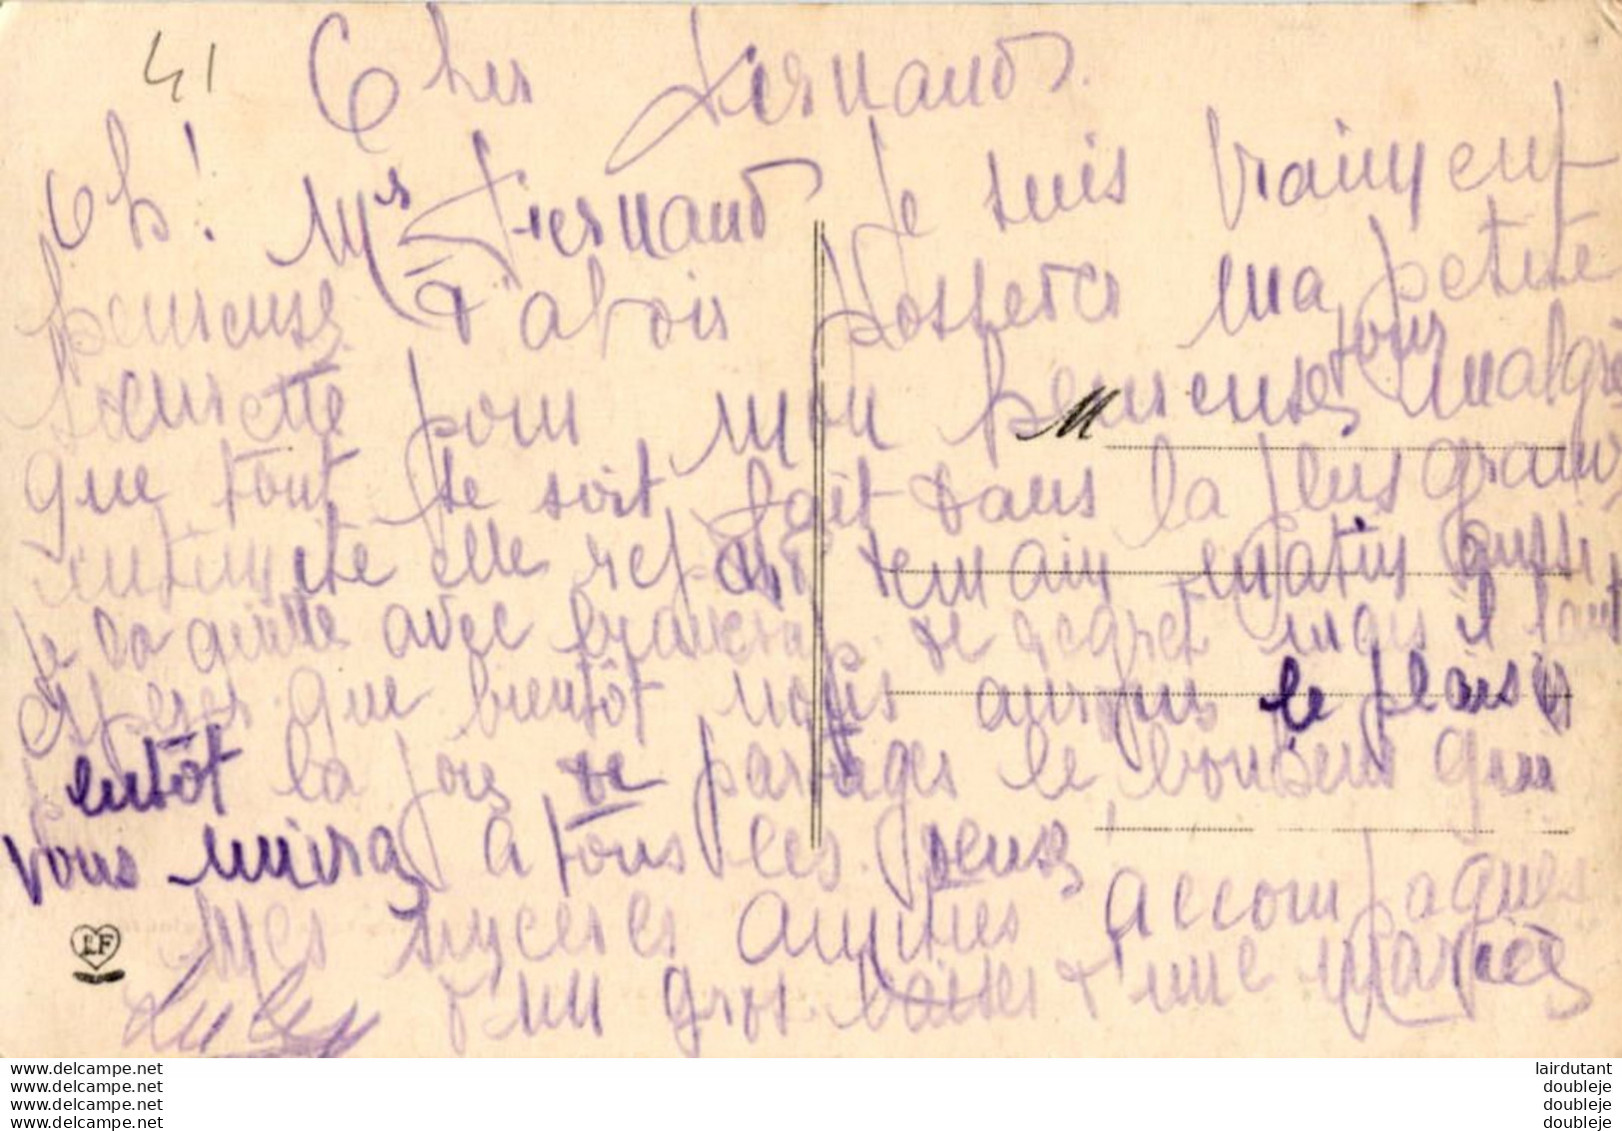 41
Cher Fernand.
Oh! Mr Fernand Je suis vraiment
heureuse d'avoir posseder ma petite
soeurette pour mon heureuse jour malgré
que tout se soit fait dans la plus grand
intimité elle repart demain matin aussi
je la quitte avec beaucoup de regret mais il faut
esperer que bientôt nous aurons le plaisir
entôt la joie de partager le bonheur qui
vous unira à tous les deux
Mes sinceres amities accompagnes
d'un gros baiser d'une mariée
M
LF
www.delcampe.net
www.delcampe.net
www.delcampe.net
www.delcampe.net
lairdutant
doubleje
doubleje
doubleje